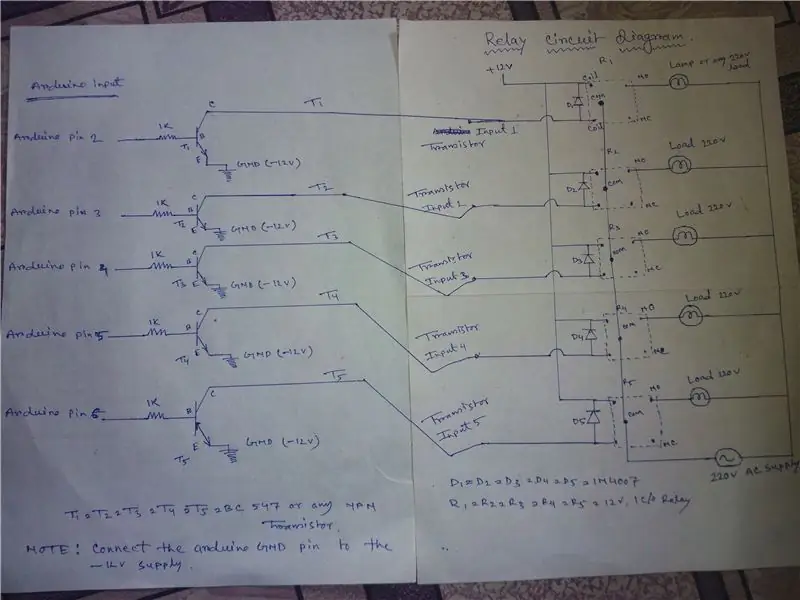 Relay Circuit Diagram.
Arduino input
Arduino pin 2
1K
B
C
E
T1
T1
GND (-12V)
Arduino pin 3
1K
B
C
E
T2
T2
GND (-12V)
Arduino pin 4
1K
B
C
E
T3
T3
GND (-12V)
Arduino pin 5
1K
B
C
E
T4
T4
GND (-12V)
Arduino pin 6
1K
B
C
E
T5
T5
GND (-12V)
T1 = T2 = T3 = T4 = T5 = BC 547 or any NPN
Transistor.
NOTE: Connect the arduino GND pin to the
-12V supply.
+12V
R1
Lamp or any 220V
load
Coil
NO
D1
COM
Coil
NC
Input 1
Transistor
R2
Load 220V
NO
D2
COM
NC
Transistor
Input 2
R3
Load 220V
NO
D3
COM
NC
Transistor
Input 3
R4
Load 220V
NO
D4
COM
NC
Transistor
Input 4
R5
Load 220V
NO
D5
COM
NC
Transistor
Input 5
220V AC Supply
D1 = D2 = D3 = D4 = D5 = 1N4007
R1 = R2 = R3 = R4 = R5 = 12V, 1 C/O Relay